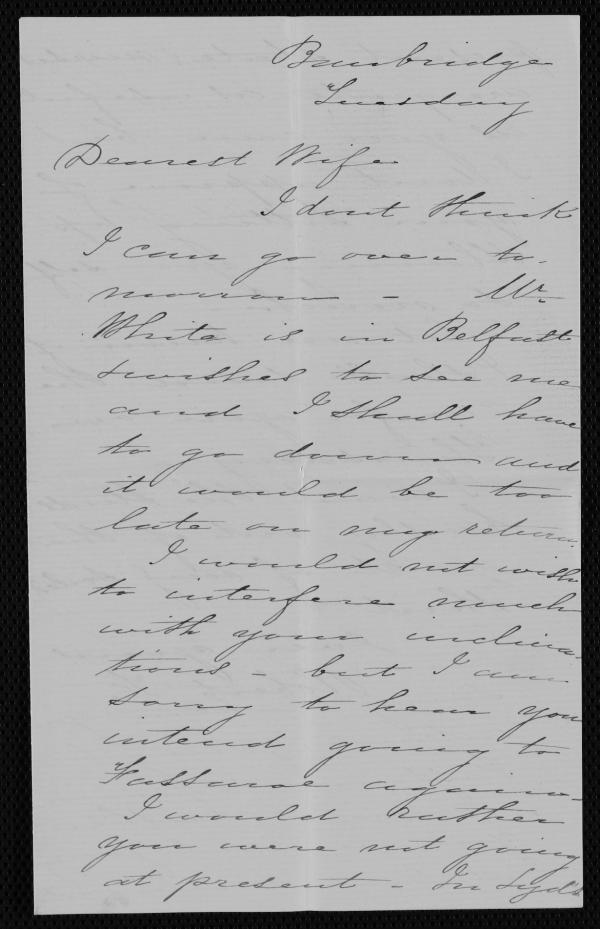 Banbridge
Tuesday
Dearest Wife
I dont think
I can go over to-
morrow - Mr
White is in Belfast
& wishes to see me
and I shall have
to go down and
it would be too
late on my return.
I would not wish
to interfere much
with your inclina-
tions - but I am
sorry to hear you
intend going to
Fassaroe again -
I would rather
you were not going
at present - In